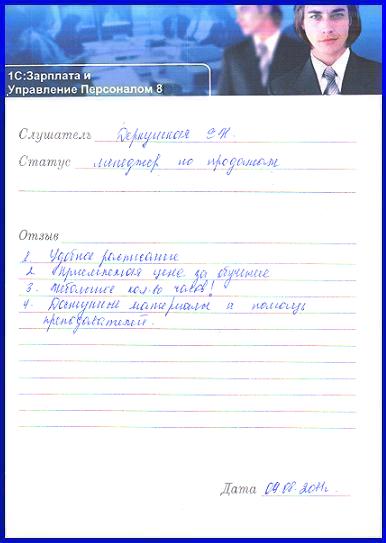 1С:Зарплата и
Управление Персоналом 8
Слушатель
Статус менеджер по продажам
Отзыв
1. Удобное расписание
2. Приемлемая цена за обучение
3. Небольшое кол-во часов!
4. Доступные материалы и помощь
преподавателей.
Дата